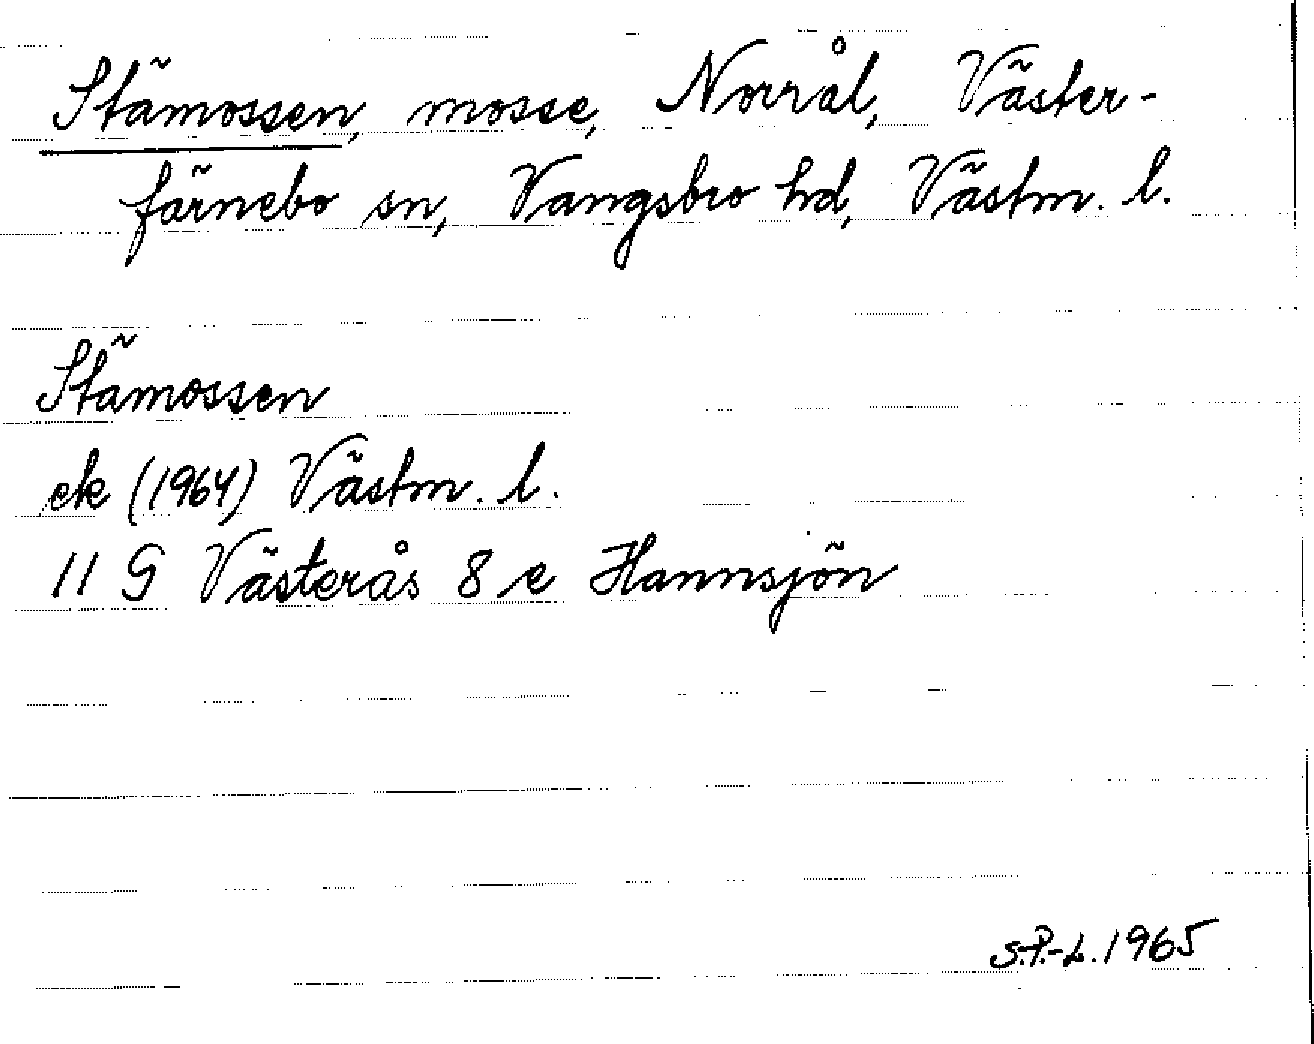 Stämossen, mosse, Norrål, Väster-
färnebo sn, Vangsbro hd, Västm. l.
Stämossen
ek (1964) Västm. l.
11 G Västerås 8 e Hannsjön
S.P.-L. 1965